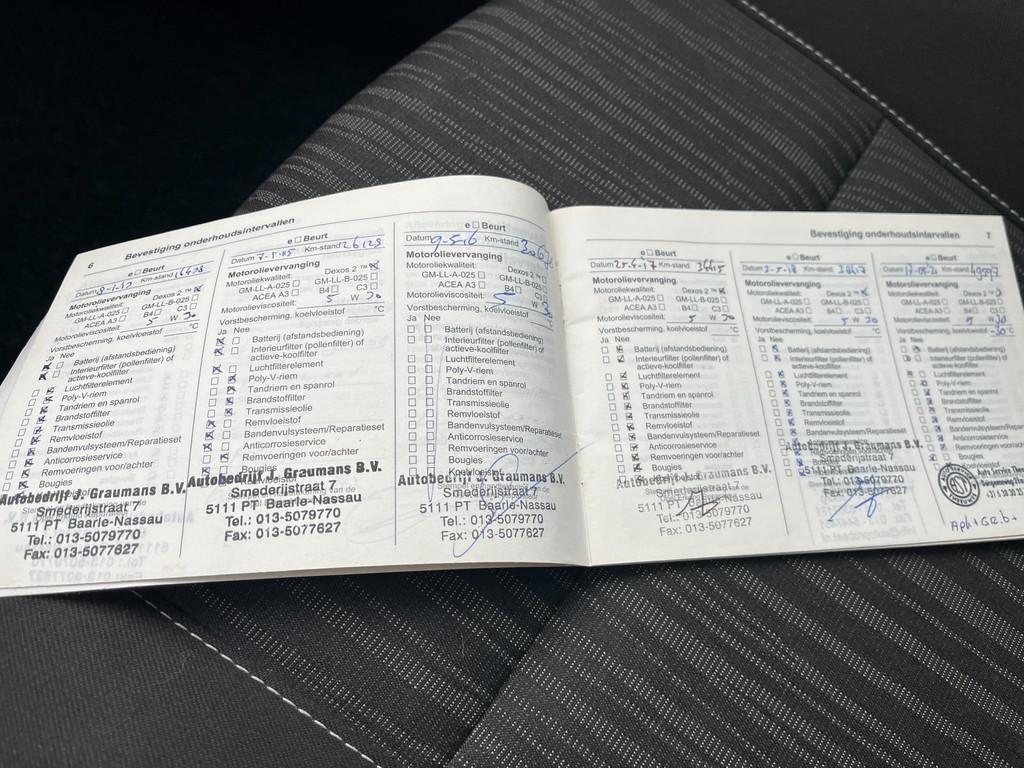 6 Bevestiging onderhoudsintervallen
e □ Beurt
Datum Km-stand
Motorolievervanging
Motoroliekwaliteit: Dexos 2 ™
GM-LL-A-025 □ GM-LL-B-025 □
ACEA A3 □ B4 □ C3 □
Motorolieviscositeit: 5 W 30
Vorstbescherming, koelvloeistof °C
Ja Nee
Batterij (afstandsbediening)
Interieurfilter (pollenfilter) of
actieve-koolfilter
Luchtfilterelement
Poly-V-riem
Tandriem en spanrol
Brandstoffilter
Transmissieolie
Remvloeistof
Bandenvulsysteem/Reparatieset
Anticorrosieservice
Remvoeringen voor/achter
Bougies
Autobedrijf J. Graumans B.V.
Smederijstraat 7
5111 PT Baarle-Nassau
Tel.: 013-5079770
Fax: 013-5077627
e □ Beurt
Datum 7-5-15 Km-stand 26128
Motorolievervanging
Motoroliekwaliteit: Dexos 2 ™
GM-LL-A-025 □ GM-LL-B-025 □
ACEA A3 □ B4 □ C3 □
Motorolieviscositeit: 5 W 30
Vorstbescherming, koelvloeistof °C
Ja Nee
Batterij (afstandsbediening)
Interieurfilter (pollenfilter) of
actieve-koolfilter
Luchtfilterelement
Poly-V-riem
Tandriem en spanrol
Brandstoffilter
Transmissieolie
Remvloeistof
Bandenvulsysteem/Reparatieset
Anticorrosieservice
Remvoeringen voor/achter
Bougies
Autobedrijf J. Graumans B.V.
Smederijstraat 7
5111 PT Baarle-Nassau
Tel.: 013-5079770
Fax: 013-5077627
e □ Beurt
Datum 9-5-16 Km-stand
Motorolievervanging
Motoroliekwaliteit: Dexos 2 ™
GM-LL-A-025 □ GM-LL-B-025 □
ACEA A3 □ B4 □ C3 □
Motorolieviscositeit: 5 W 30
Vorstbescherming, koelvloeistof °C
Ja Nee
Batterij (afstandsbediening)
Interieurfilter (pollenfilter) of
actieve-koolfilter
Luchtfilterelement
Poly-V-riem
Tandriem en spanrol
Brandstoffilter
Transmissieolie
Remvloeistof
Bandenvulsysteem/Reparatieset
Anticorrosieservice
Remvoeringen voor/achter
Bougies
Koelvloeistof
Autobedrijf J. Graumans B.V.
Smederijstraat 7
5111 PT Baarle-Nassau
Tel.: 013-5079770
Fax: 013-5077627
Bevestiging onderhoudsintervallen 7
e □ Beurt
Datum 25-4-17 Km-stand
Motorolievervanging
Motoroliekwaliteit: Dexos 2 ™
GM-LL-A-025 □ GM-LL-B-025 □
ACEA A3 □ B4 □ C3 □
Motorolieviscositeit: 5 W 30
Vorstbescherming, koelvloeistof °C
Ja Nee
Batterij (afstandsbediening)
Interieurfilter (pollenfilter) of
actieve-koolfilter
Luchtfilterelement
Poly-V-riem
Tandriem en spanrol
Brandstoffilter
Transmissieolie
Remvloeistof
Bandenvulsysteem/Reparatieset
Anticorrosieservice
Remvoeringen voor/achter
Bougies
Graumans B.V.
Smederijstraat 7
5111 PT Baarle-Nassau
Tel.: 013-5079770
Fax: 013-5077627
e □ Beurt
Datum Km-stand
Motorolievervanging
Motoroliekwaliteit: Dexos 2 ™
GM-LL-A-025 □ GM-LL-B-025 □
ACEA A3 □ B4 □ C3 □
Motorolieviscositeit: 5 W 30
Vorstbescherming, koelvloeistof °C
Ja Nee
Batterij (afstandsbediening)
Interieurfilter (pollenfilter) of
actieve-koolfilter
Luchtfilterelement
Poly-V-riem
Tandriem en spanrol
Brandstoffilter
Transmissieolie
Remvloeistof
Bandenvulsysteem/Reparatieset
Anticorrosieservice
Autobedrijf J. Graumans B.V.
Smederijstraat 7
5111 PT Baarle-Nassau
Tel.: 013-5079770
Fax: 013-5077627
e □ Beurt
Datum Km-stand
Motorolievervanging
Motoroliekwaliteit: Dexos 2 ™
GM-LL-A-025 □ GM-LL-B-025 □
ACEA A3 □ B4 □ C3 □
Motorolieviscositeit: 5 W 30
Vorstbescherming, koelvloeistof -30 °C
Ja Nee
Batterij (afstandsbediening)
Interieurfilter (pollenfilter) of
actieve-koolfilter
Luchtfilterelement
Poly-V-riem
Tandriem en spanrol
Brandstoffilter
Transmissieolie
Remvloeistof
Bandenvulsysteem/Reparatieset
Anticorrosieservice
Remvoeringen voor/achter
Bougies